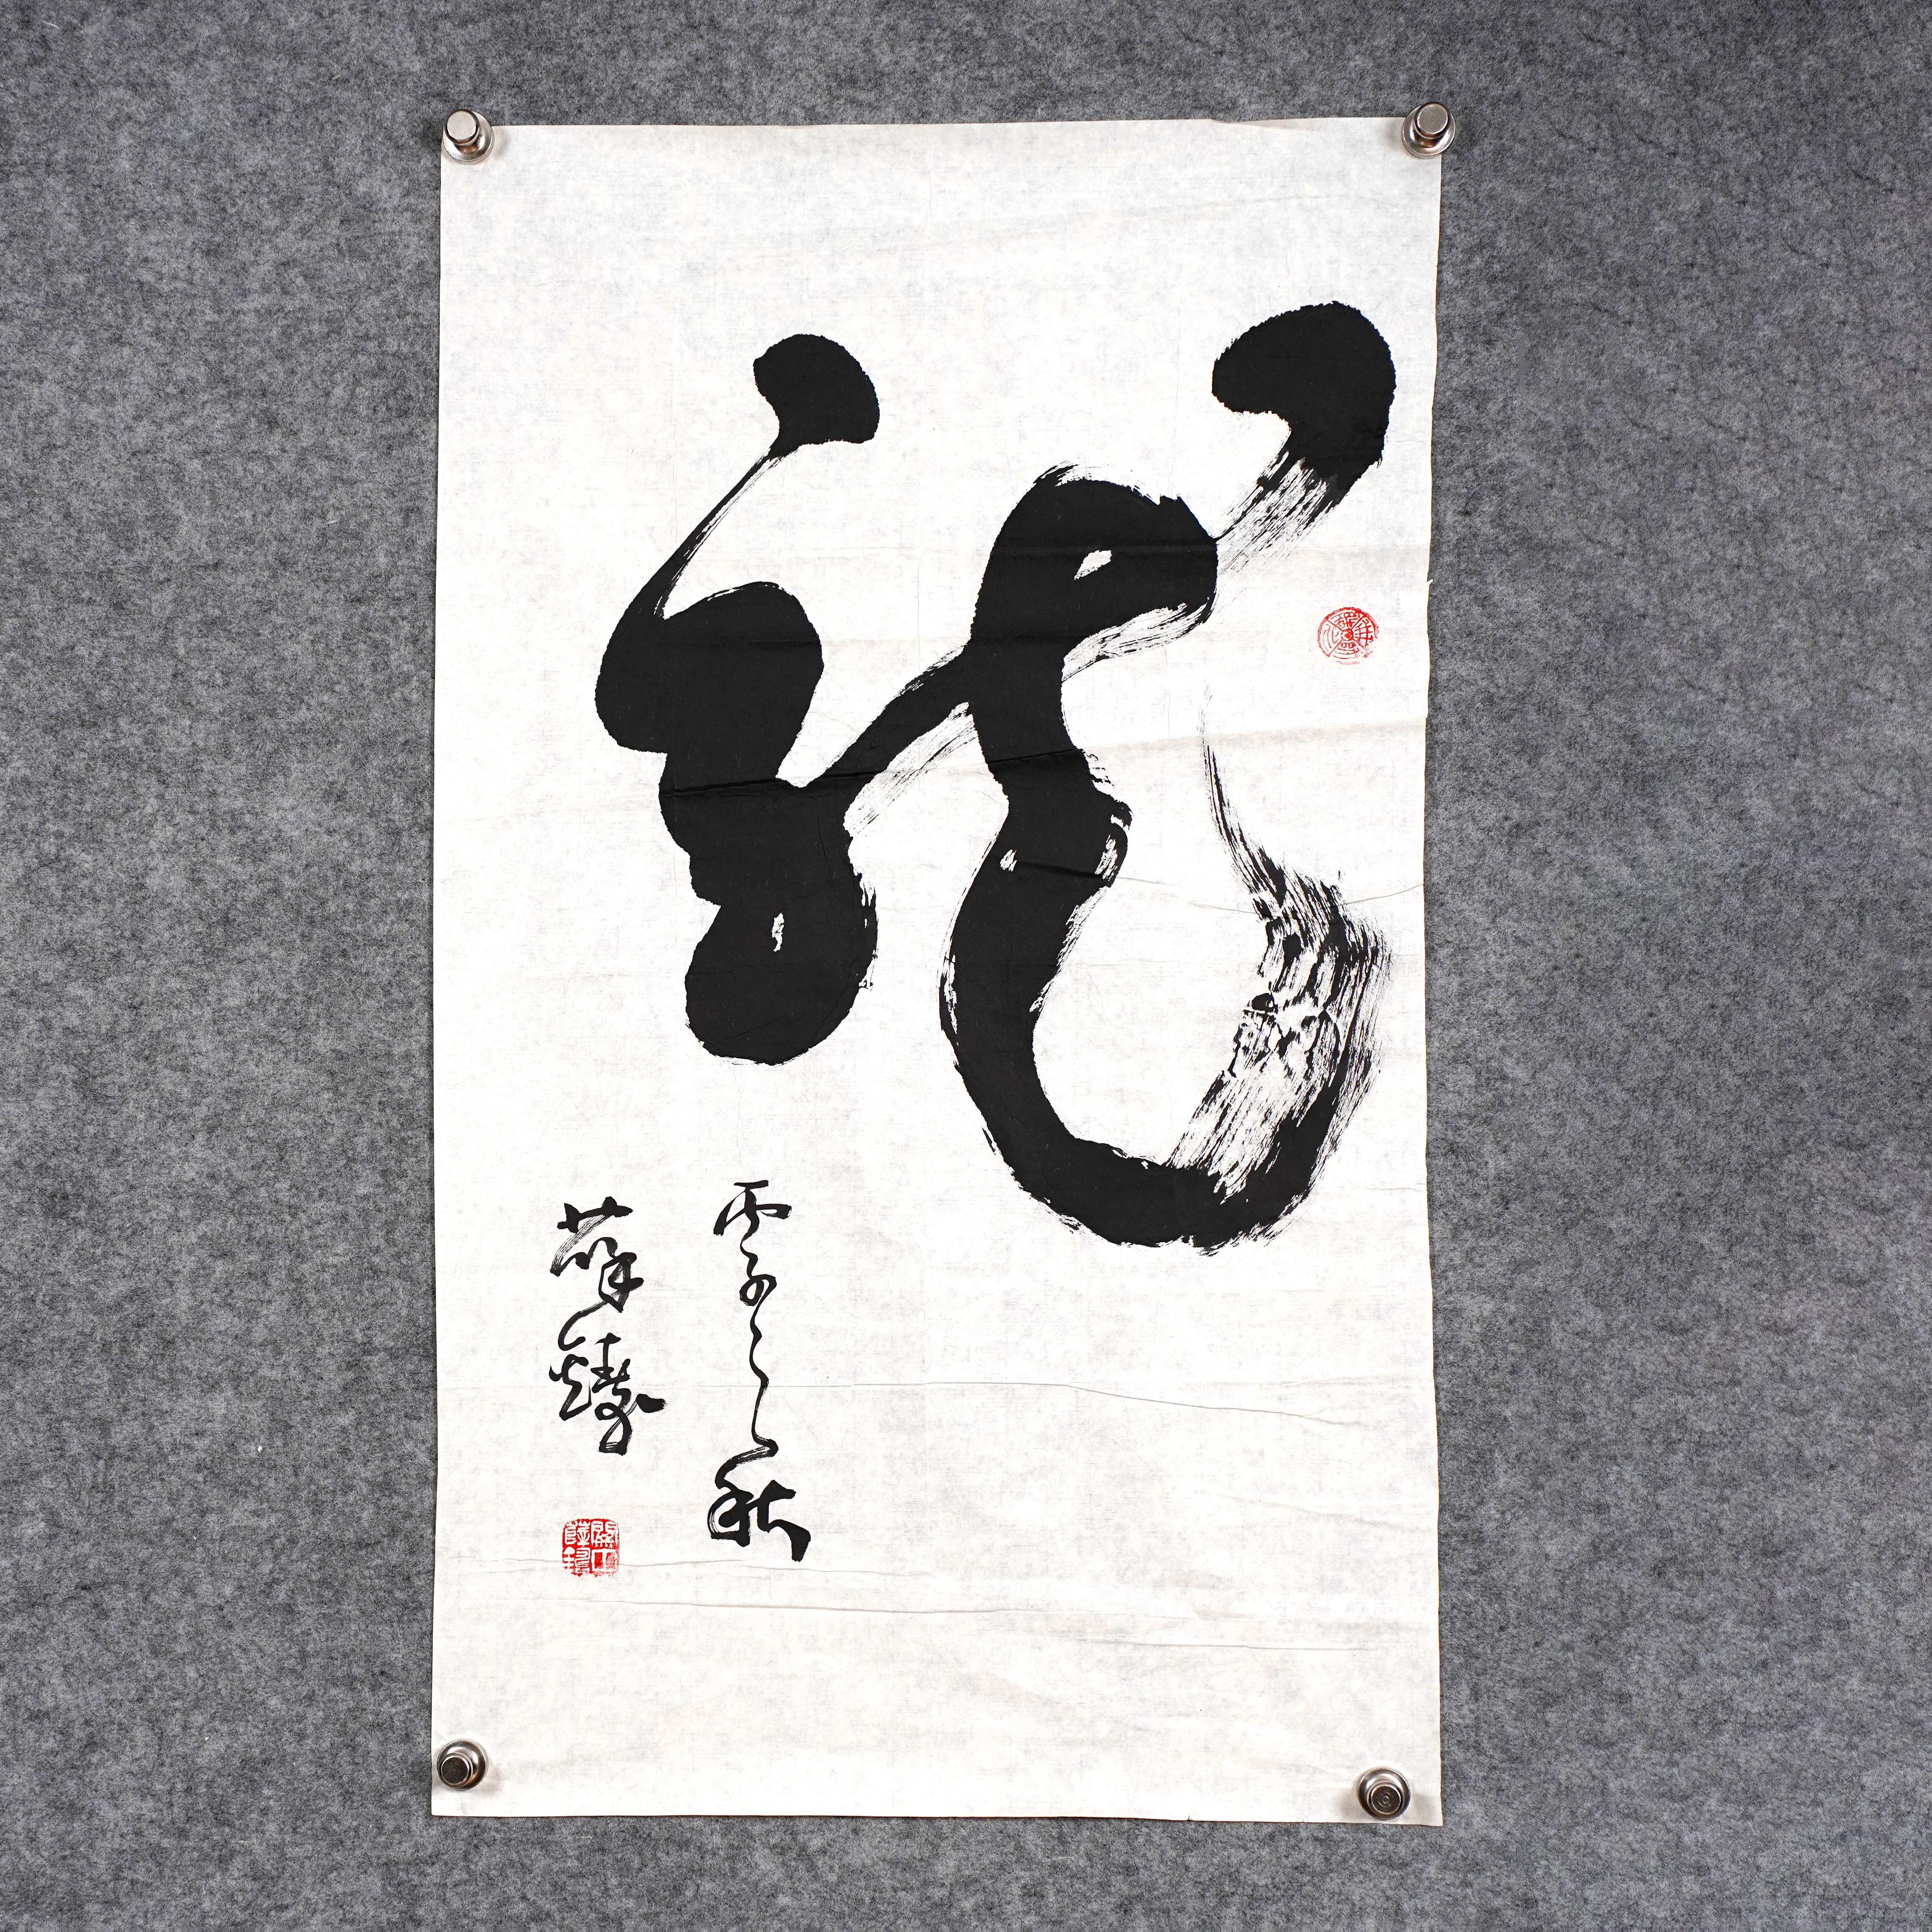 龍
丙子之秋
薛鑄